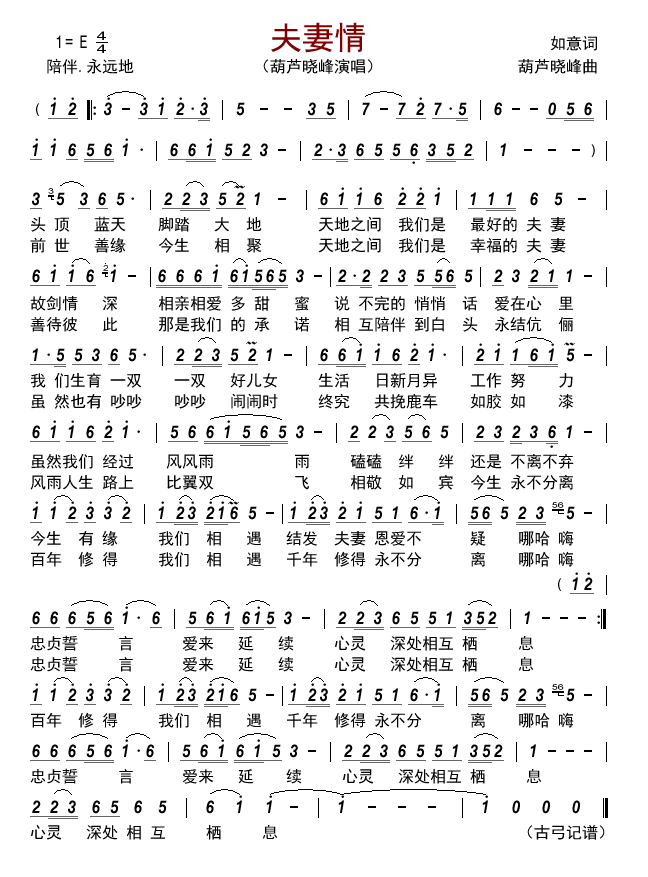 夫妻情
1= E 4/4 如意词
陪伴.永远地 （葫芦晓峰演唱） 葫芦晓峰曲
( 1 2 ‖: 3 - 3 1 2 · 3 | 5 - - 3 5 | 7 - 7 2 7 · 5 | 6 - - 0 5 6 |
1 1 6 5 6 1 · | 6 6 1 5 2 3 - | 2 · 3 6 5 5 6 3 5 2 | 1 - - - ) |
3 3 2 5 3 6 5 · | 2 2 3 5 2 1 - | 6 1 1 6 2 2 1 | 1 1 1 6 5 - |
头 顶 蓝天 脚踏 大 地 天地之间 我们是 最好的 夫 妻
前 世 善缘 今生 相 聚 天地之间 我们是 幸福的 夫 妻
6 1 1 6 2 1 - | 6 6 6 1 6 1 5 6 5 3 - | 2 · 2 2 3 5 5 6 5 | 2 3 2 1 1 - |
故剑情 深 相亲相爱 多 甜 蜜 说 不完的 悄悄 话 爱在心 里
善待彼 此 那是我们 的 承 诺 相 互陪伴 到白 头 永结伉 俪
1 · 5 5 3 6 5 · | 2 2 3 5 2 1 - | 6 6 1 1 6 2 1 · | 2 1 1 6 1 5 - |
我 们生育 一双 一双 好儿女 生活 日新月异 工作 努 力
虽 然也有 吵吵 吵吵 闹闹时 终究 共挽鹿车 如胶 如 漆
6 1 1 6 2 1 · | 5 6 6 1 5 6 5 3 - | 2 2 3 5 6 5 | 2 3 2 3 6 1 - |
虽然我们 经过 风风雨 雨 磕磕 绊 绊 还是 不离不弃
风雨人生 路上 比翼双 飞 相敬 如 宾 今生 永不分离
1 1 2 3 3 2 | 1 2 3 2 1 6 5 - | 1 2 3 2 1 5 1 6 · 1 | 5 6 5 2 3 56 5 - |
今生 有 缘 我们 相 遇 结发 夫妻 恩爱不 疑 哪哈 嗨
百年 修 得 我们 相 遇 千年 修得 永不分 离 哪哈 嗨
( 1 2
6 6 6 5 6 1 · 6 | 5 6 1 6 1 5 3 - | 2 2 3 6 5 5 1 3 5 2 | 1 - - - :‖
忠贞誓 言 爱来 延 续 心灵 深处相互 栖 息
忠贞誓 言 爱来 延 续 心灵 深处相互 栖 息
1 1 2 3 3 2 | 1 2 3 2 1 6 5 - | 1 2 3 2 1 5 1 6 · 1 | 5 6 5 2 3 56 5 - |
百年 修 得 我们 相 遇 千年 修得 永不分 离 哪哈 嗨
6 6 6 5 6 1 · 6 | 5 6 1 6 1 5 3 - | 2 2 3 6 5 5 1 3 5 2 | 1 - - - |
忠贞誓 言 爱来 延 续 心灵 深处相互 栖 息
2 2 3 6 5 6 5 | 6 1 1 - | 1 - - - | 1 0 0 0 ‖
心灵 深处 相 互 栖 息 （古弓记谱）